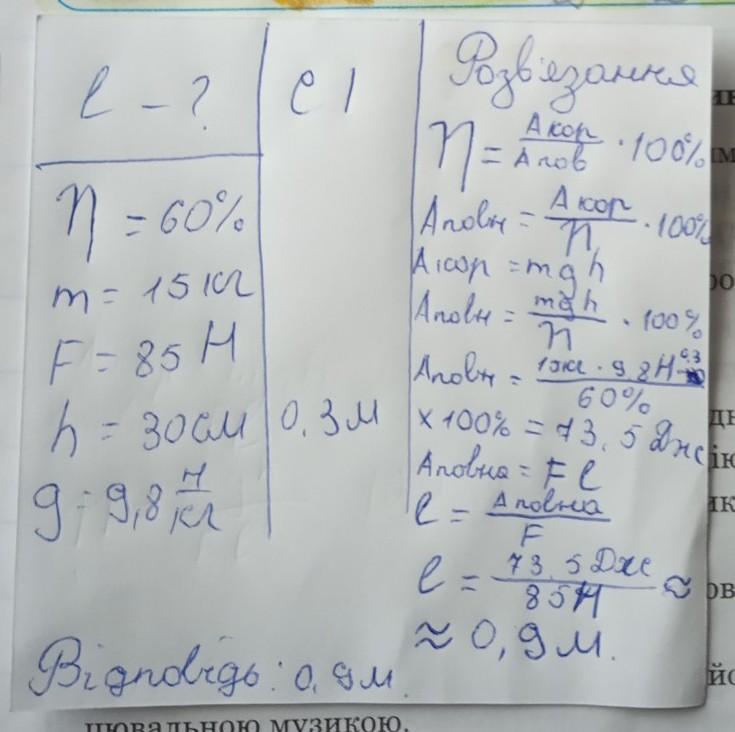 l – ?
η = 60%
m = 15 кг
F = 85 Н
h = 30 см
g = 9,8 Н/кг
СІ
0,3 м
Розв'язання
η = Aкор/Aпов · 100%
Aповн = Aкор/η · 100%
Aкор = mgh
Aповн = mgh/η · 100%
Aповн = 15кг · 9,8Н 0,3/60%
× 100% = 73,5 Дж
Aповна = Fl
l = Aповна/F
l = 73,5 Дж/85Н ≈
≈ 0,9 м.
Відповідь: 0,9 м.
цювальною музикою.